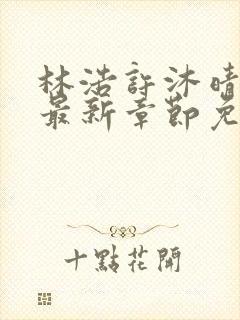 林浩許沐晴
最新章節免
十點花開